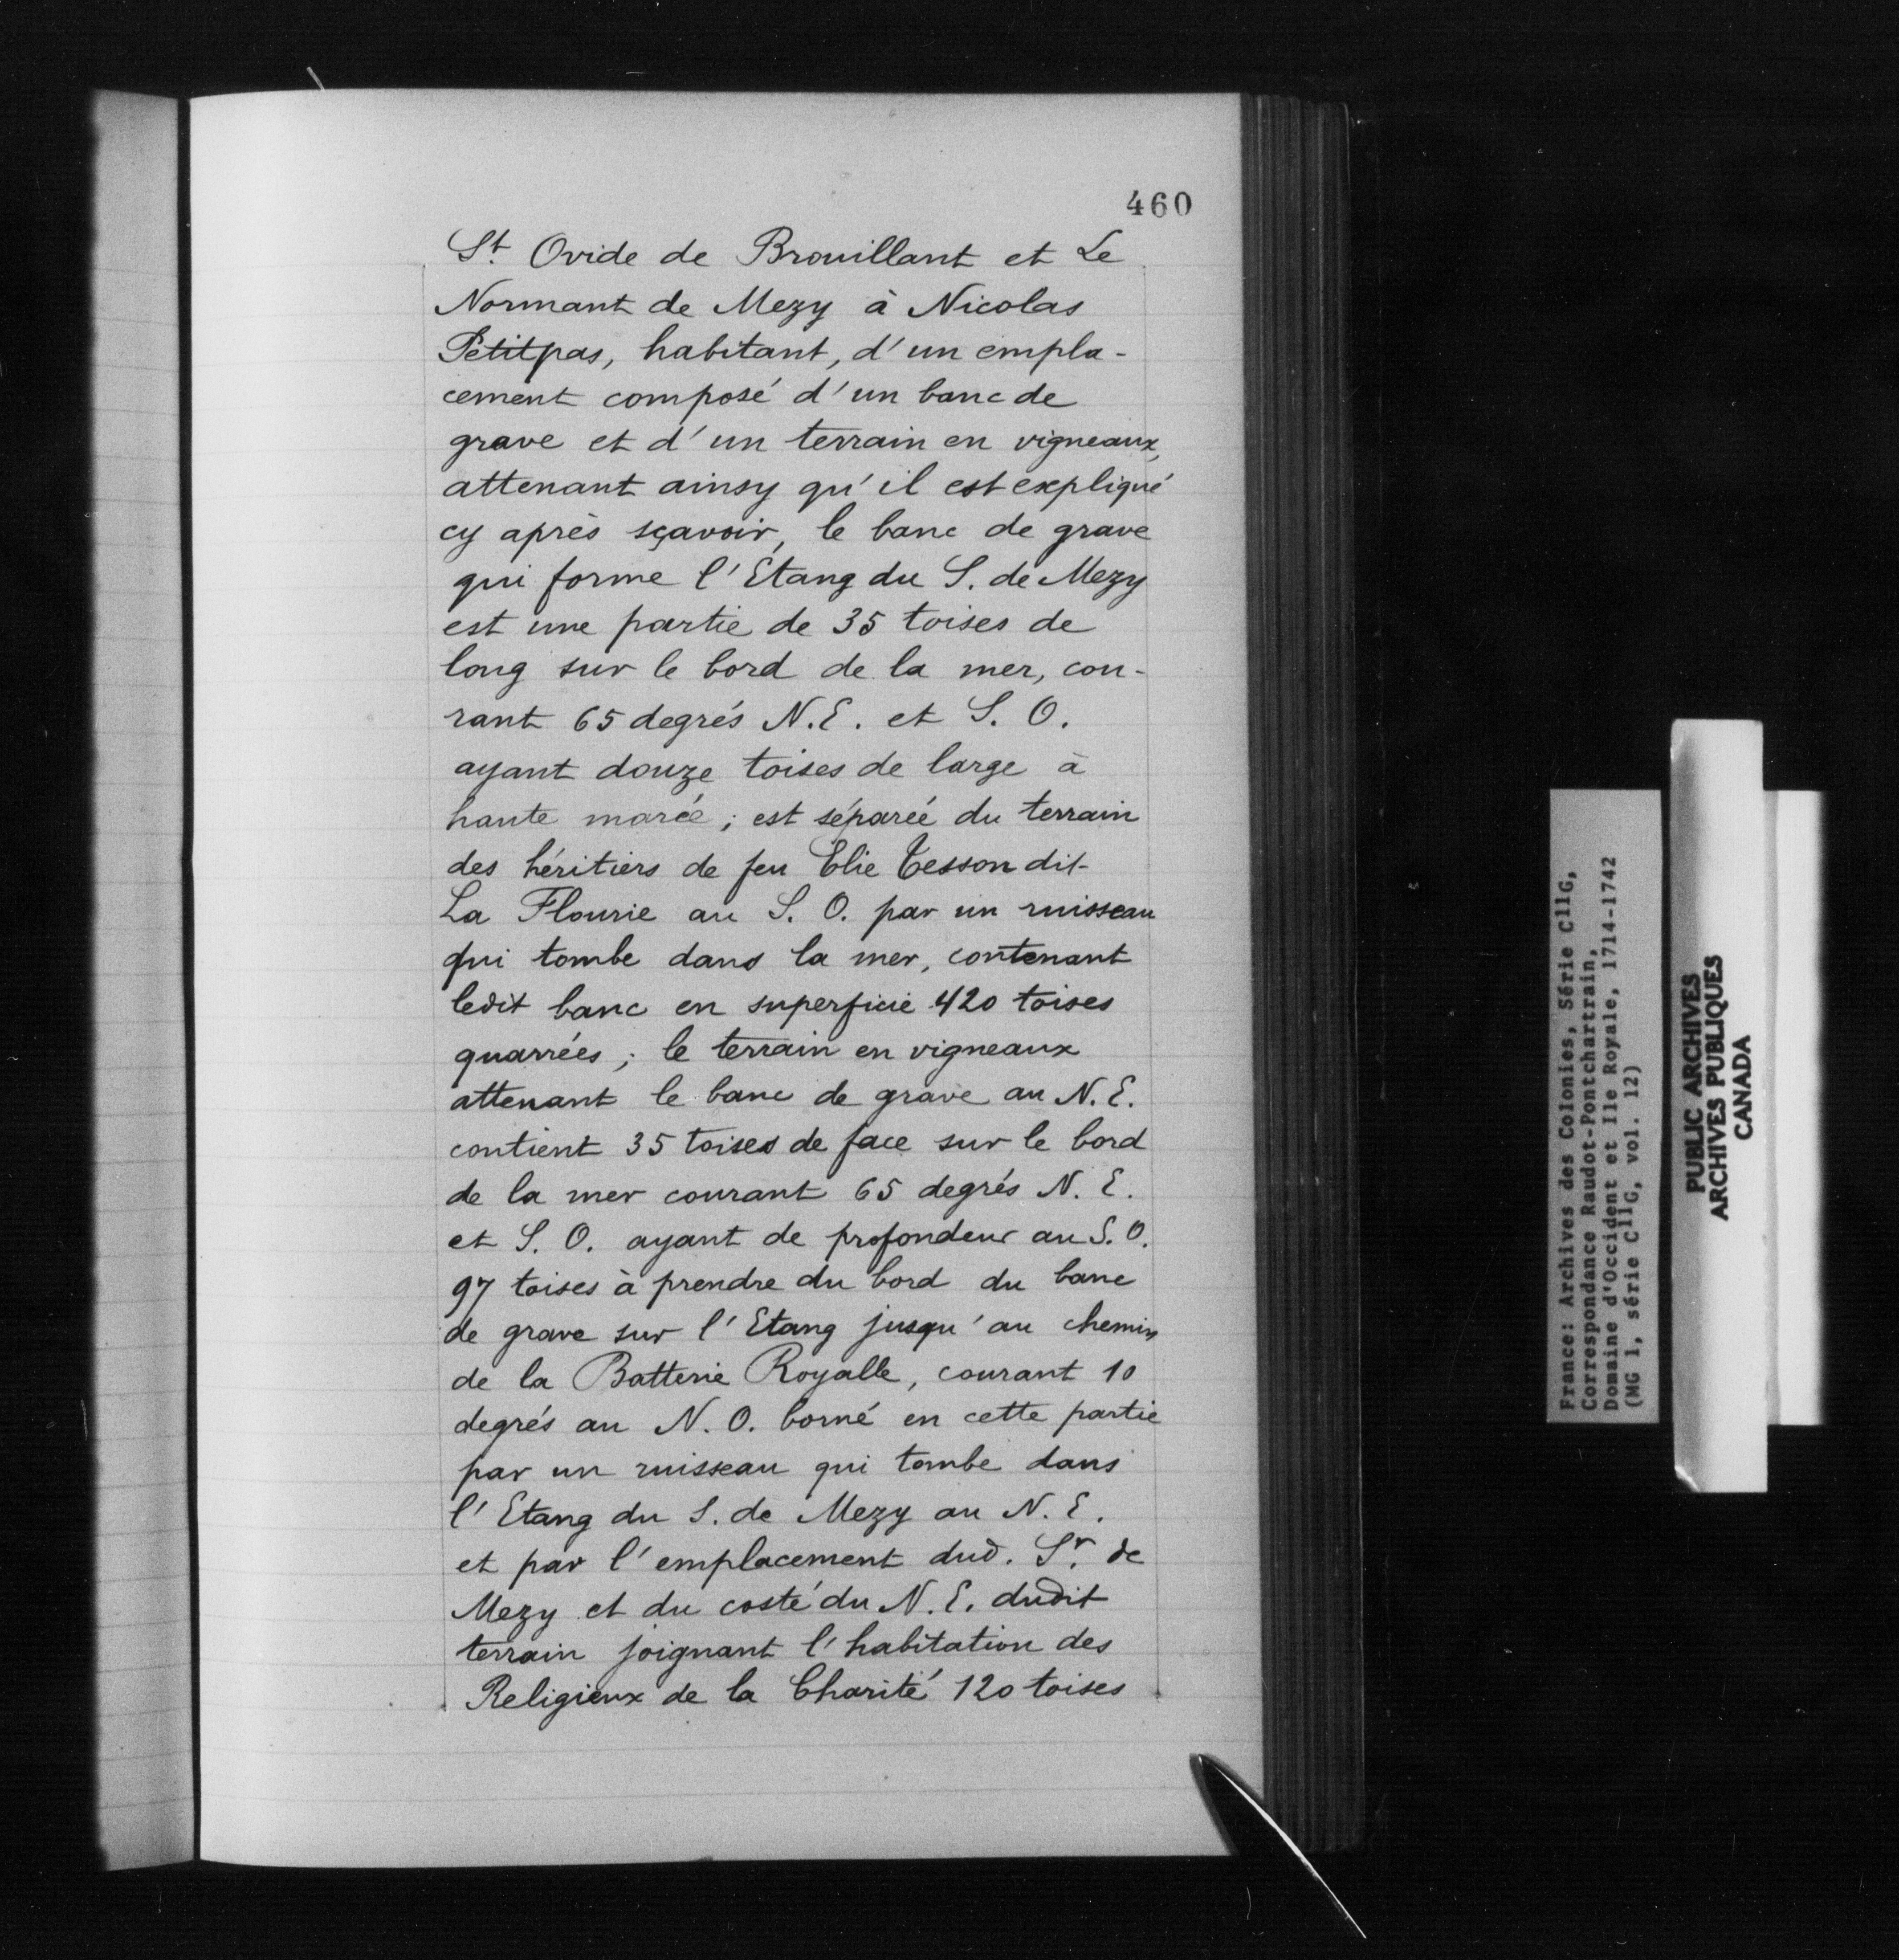 460
St. Ovide de Brouillant et Le
Normant de Mezy à Nicolas
Petitpas, habitant, d'un empla-
cement composé d'un banc de
grave et d'un terrain en vigneaux,
attenant ainsy qu'il est expliqué
cy après sçavoir, le banc de grave
qui forme l'Etang du S. de Mezy
est une partie de 35 toises de
long sur le bord de la mer, cou-
rant 65 degrés N.E. et S. O.
ayant douze toises de large à
haute marée; est séparée du terrain
des héritiers de feu Elie Tesson dit
La Flourie au S. O. par un ruisseau
qui tombe dans la mer, contenant
ledit banc en superficie 420 toises
quarrées; le terrain en vigneaux
attenant le banc de grave au N. E.
contient 35 toises de face sur le bord
de la mer courant 65 degrés N. E.
et S. O. ayant de profondeur au S. O.
97 toises à prendre du bord du banc
de grave sur l'Etang jusqu'au chemin
de la Batterie Royalle, courant 10
degrés au N. O. borné en cette partie
par un ruisseau qui tombe dans
l'Etang du S. de Mezy au N. E.
et par l'emplacement dud. Sr. de
Mezy et du costé du N. E. dudit
terrain joignant l'habitation des
Religieux de la Charité 120 toises
France: Archives des Colonies, Série C11G,
Correspondance Raudot-Pontchartrain,
Domaine d'Occident et Ile Royale, 1714-1742
(MG 1, série C11G, vol. 12)
PUBLIC ARCHIVES
ARCHIVES PUBLIQUES
CANADA